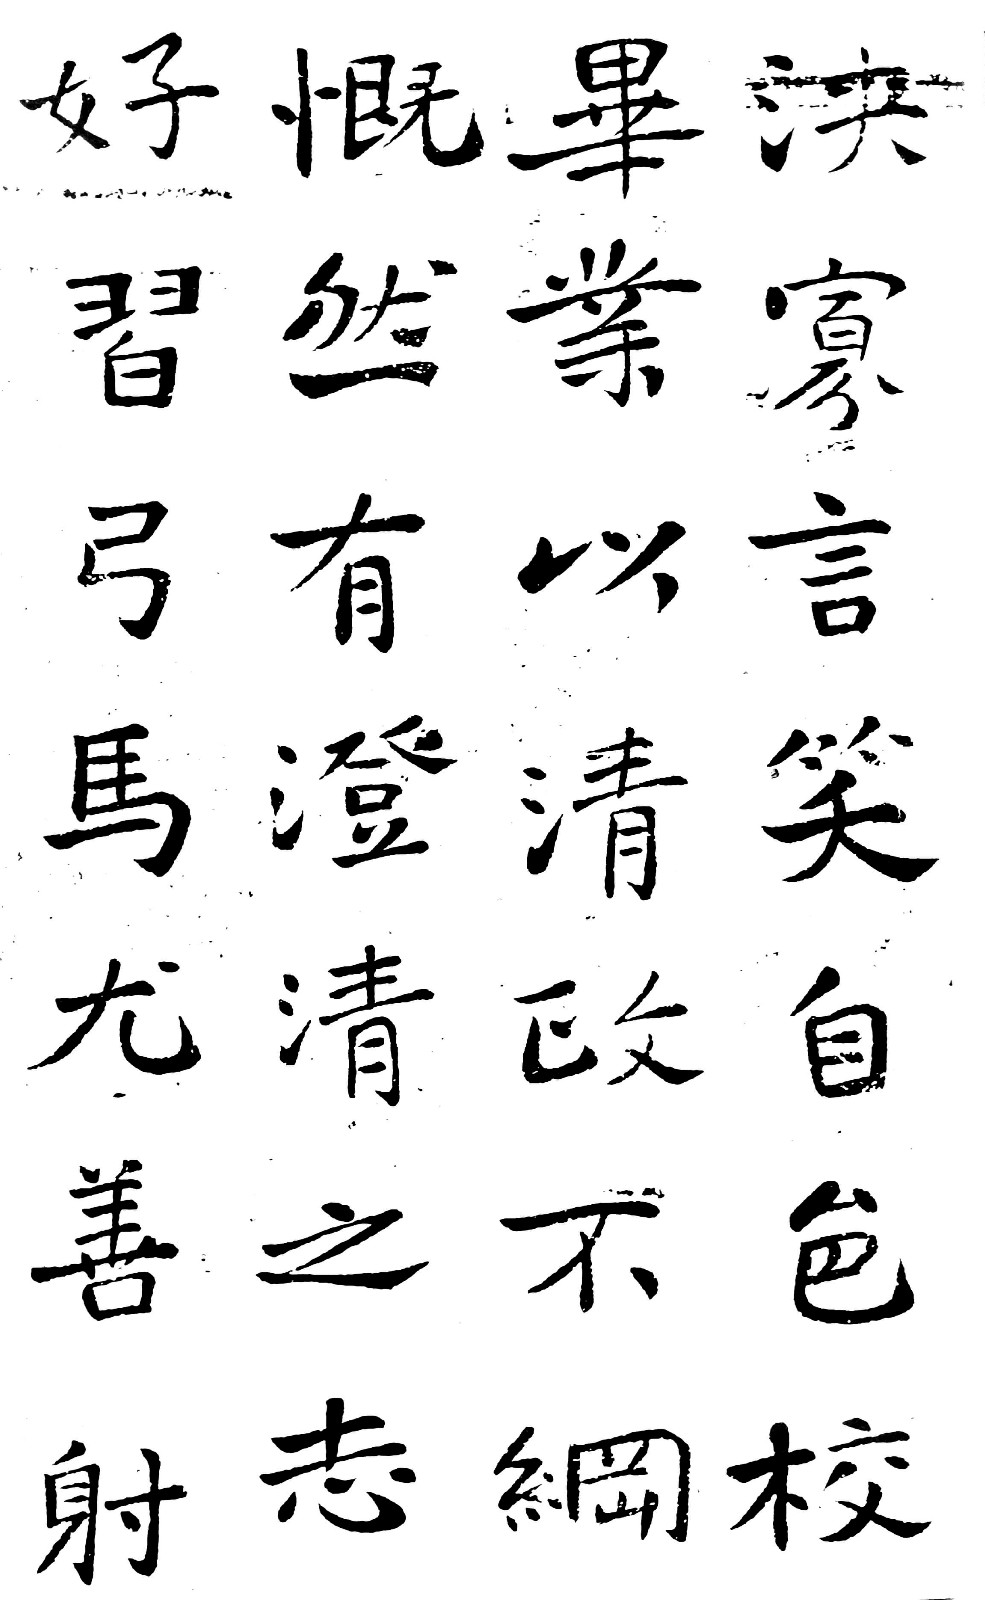 決寡言笑自邑校
畢業以清政不綱
慨然有澄清之志
好習弓馬尤善射